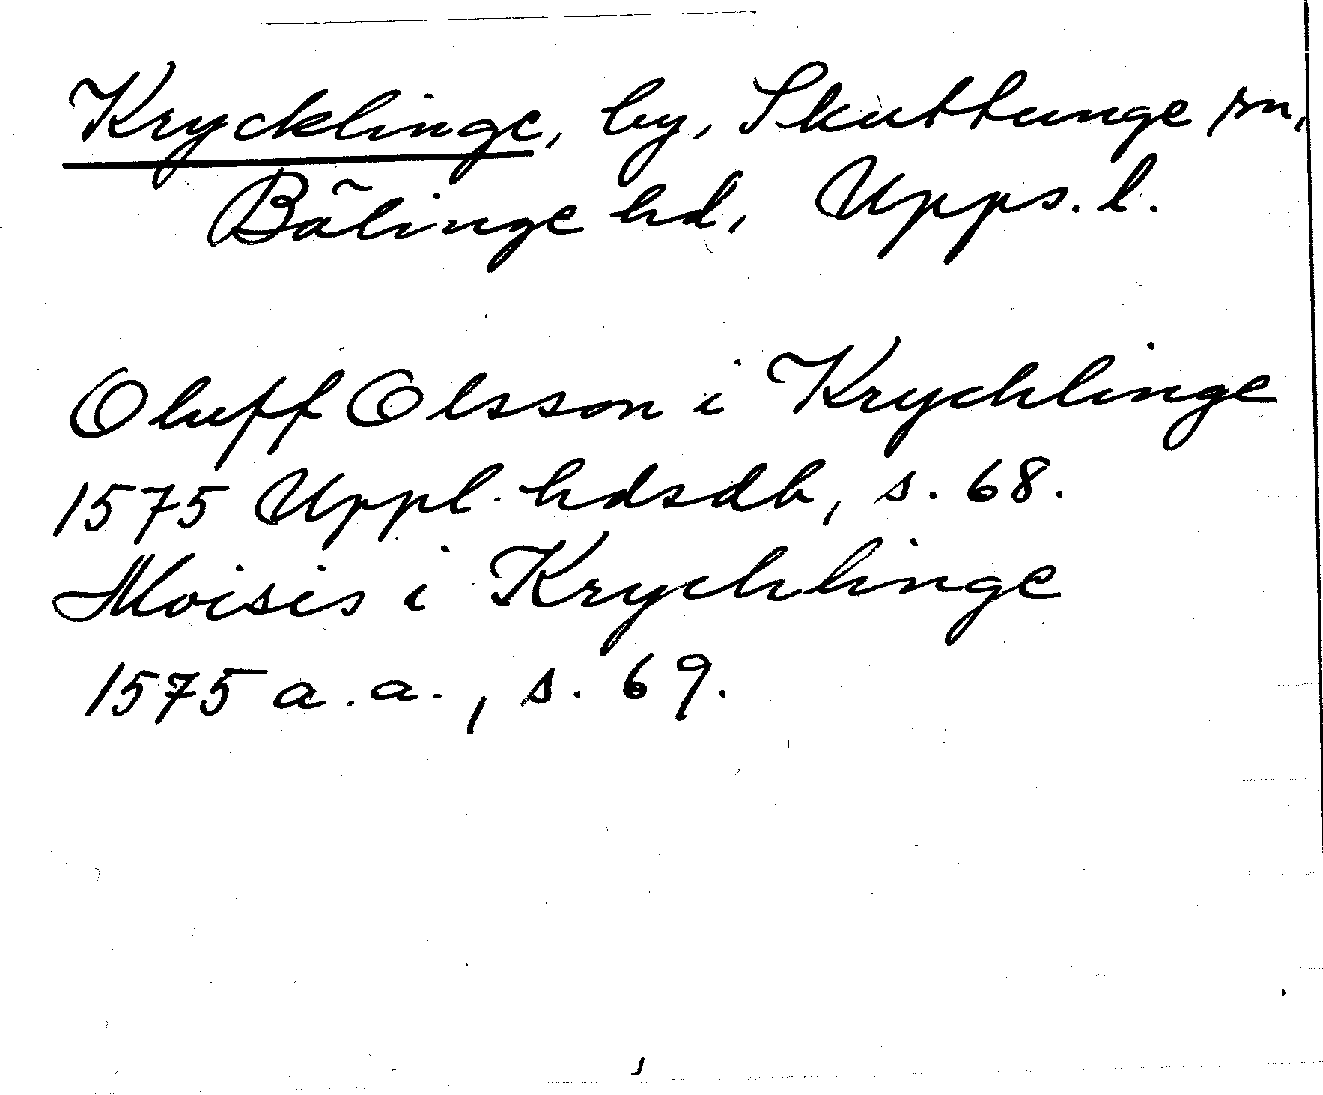 Krycklinge, by, Skuttunge sn,
Bälinge hd, Upps. l.
Oluff Olsson i Krychlinge
1575 Uppl. hdsdb, s. 68.
Moisis i Krychlinge
1575 a. a., s. 69.